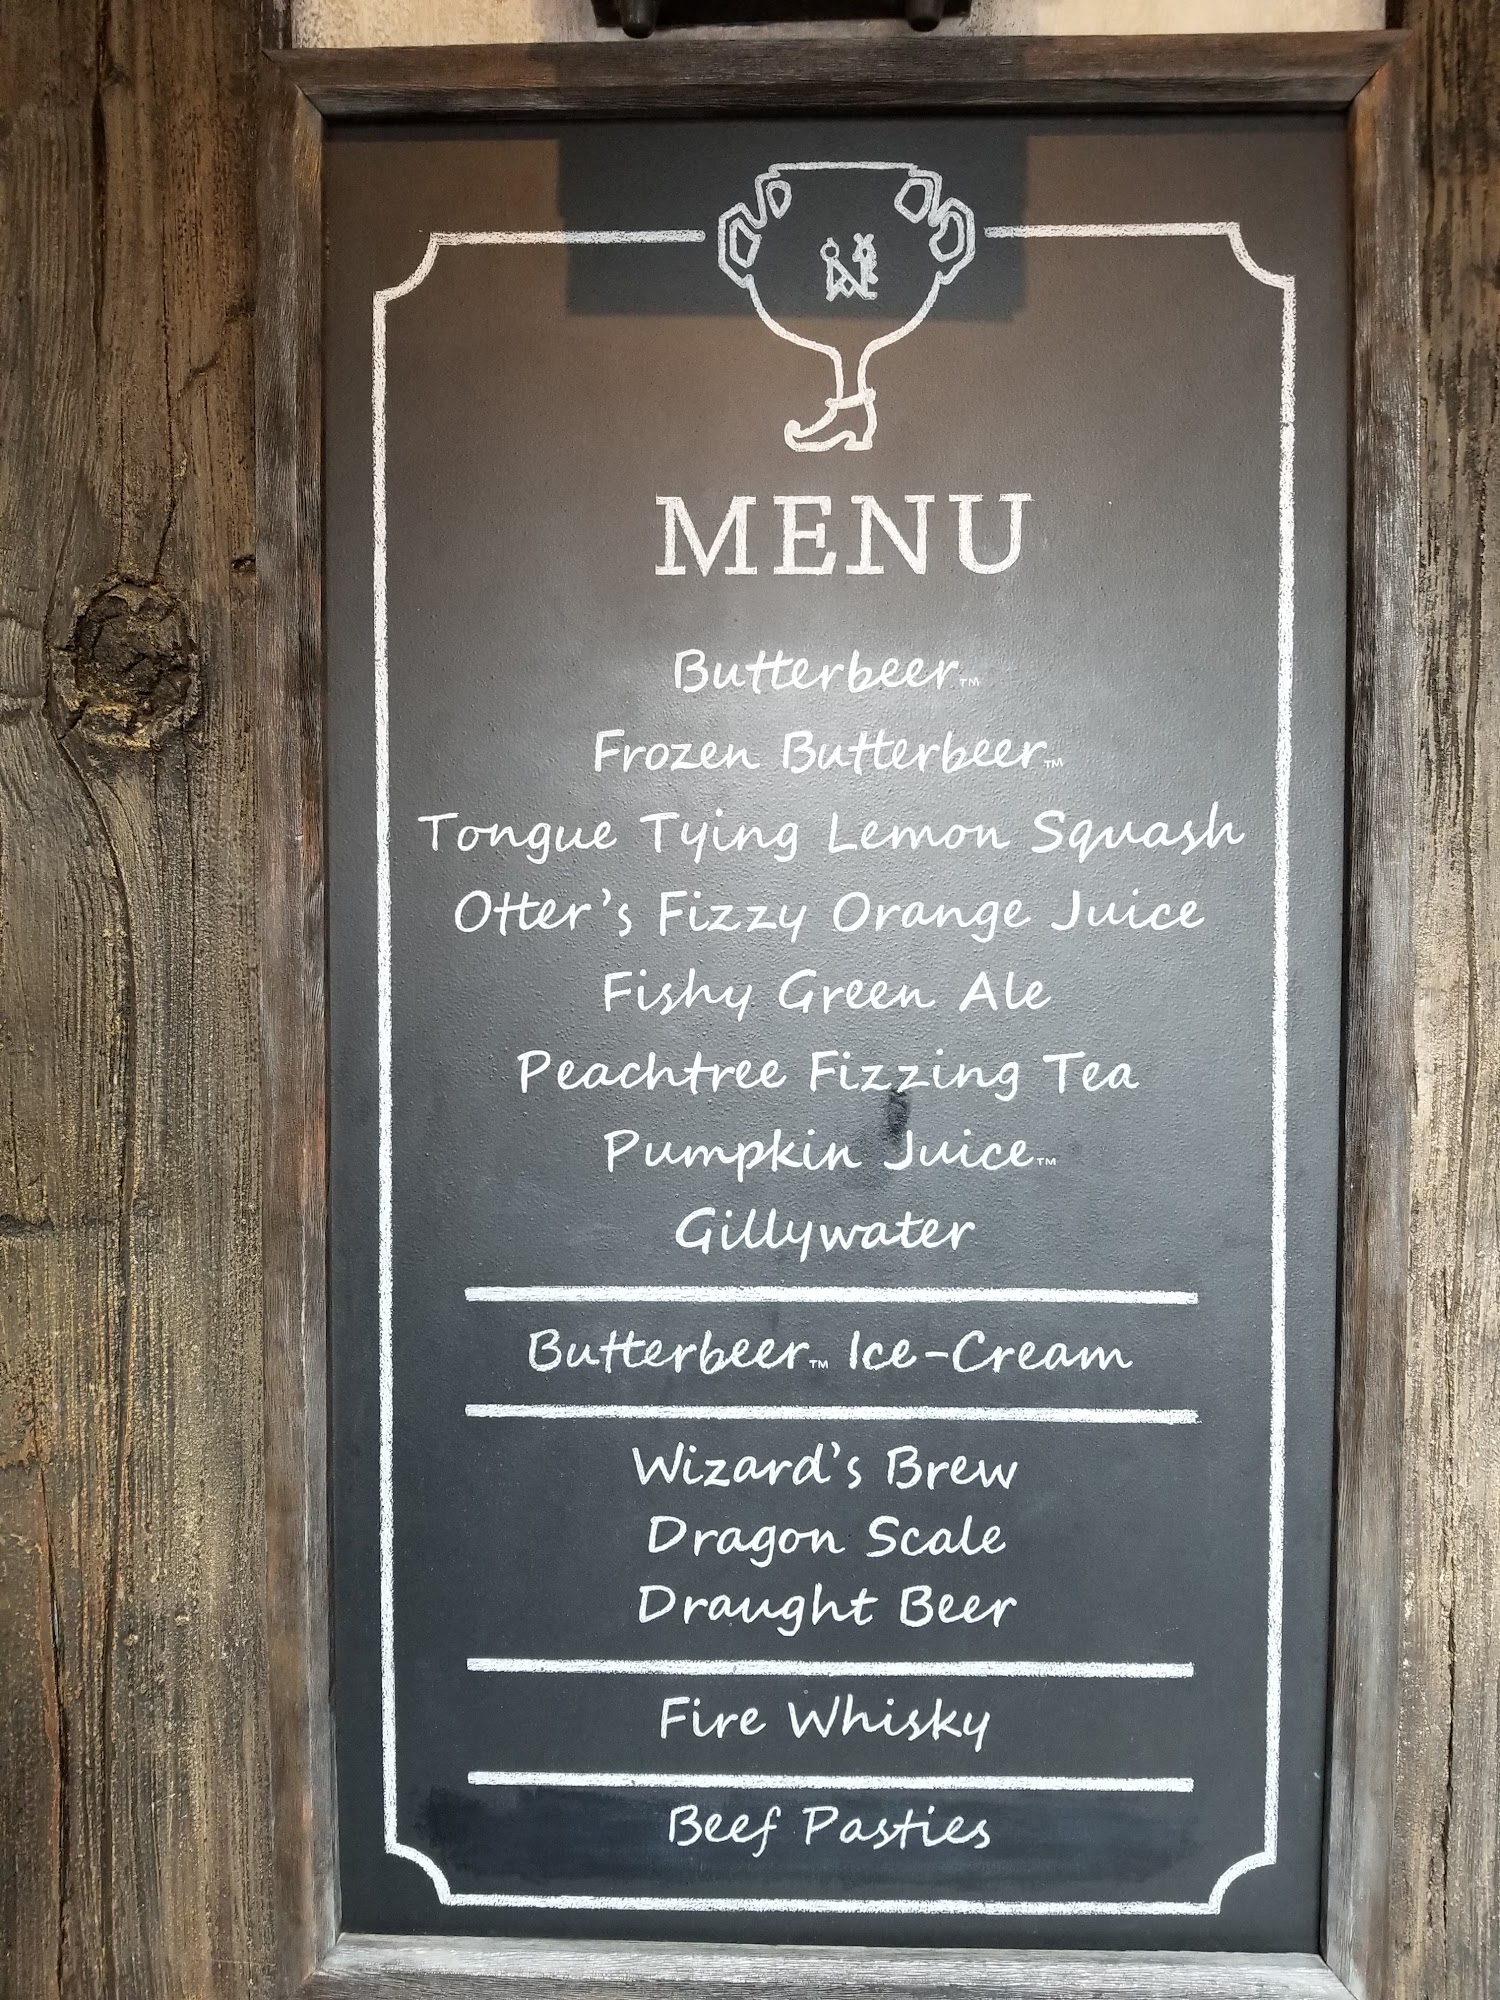 MENU
Butterbeer™
Frozen Butterbeer™
Tongue Tying Lemon Squash
Otter's Fizzy Orange Juice
Fishy Green Ale
Peachtree Fizzing Tea
Pumpkin Juice™
Gillywater
Butterbeer™ Ice-Cream
Wizard's Brew
Dragon Scale
Draught Beer
Fire Whisky
Beef Pasties